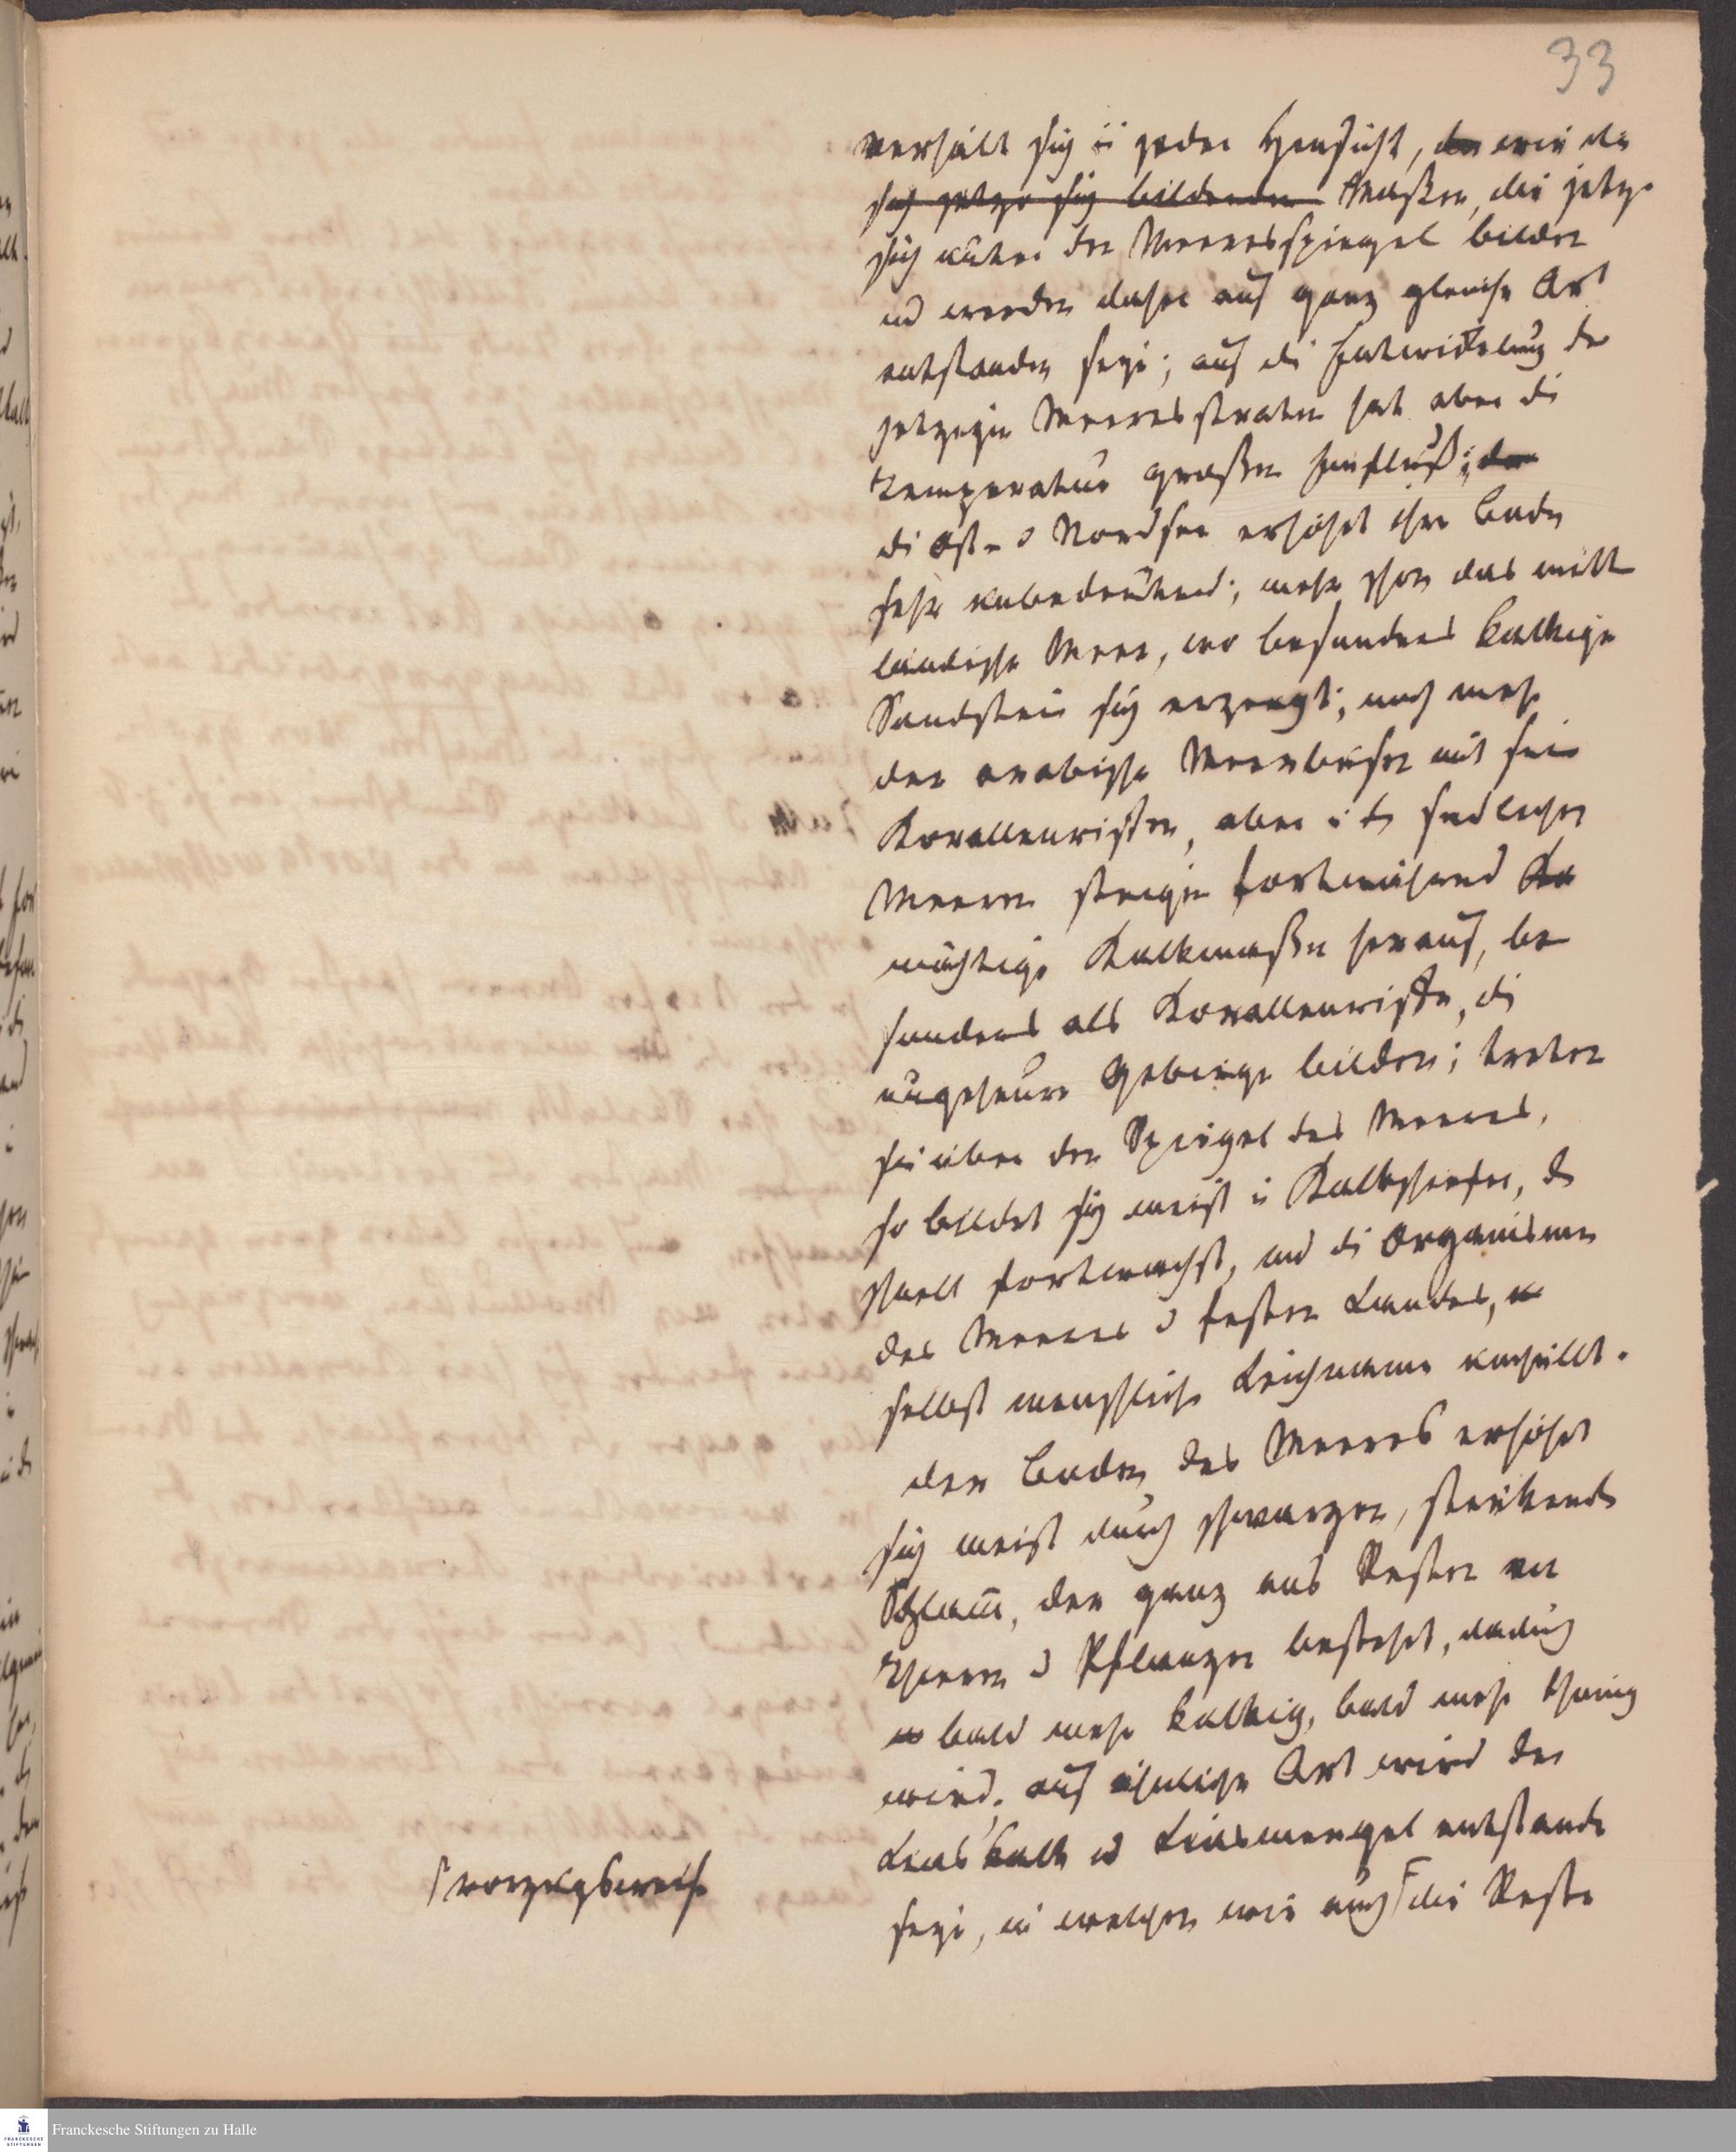 33
verhält sich in jeder Hinsicht, den wie die
sich jetzo sich bildenden Maßen, die jetzo
sich unter den Meeresspiegel bilden
und werden daher auf ganz gleiche Art
entstanden seyn; auf die Entwickelung der
jetzigen Meeresstraten hat aber die
Temperatur großen Einfluß; den
die Ost- u Nordsee erhöht ihre Boden
sehr unbedeutend; mehr schon das mittel
ländische Meer, wo besonders kalkige
Sandstein sich erzeugt; noch mehr
der arabische Meerbusen mit sein
Korallenriffen, aber in den südlichen
Meeren steigen fortwährend Ko
mächtige Kalkmaßen herauf, be
sonders als Korallenriffe, die
ungeheure Gebirge bilden; treten
sie über den Spiegel des Meeres,
so bildet sich meist ein Kalkschiefer, der
schnell fortwächst, und die Organismen
des Meeres u festen Landes,
selbst menschliche Leichname umhüllt.
der Boden des Meeres erhöht
sich meist durch schwarzen, stinkenden
Schlamm, der ganz aus Resten von
Thieren u Pflanzen besteht, dadurch
bald mehr kalkig, bald mehr thonig
wird. auf ähnliche Art wird der
Liaskalk und Liasmergel entstanden
seyn, in welchen wir auch die Reste
vorzugsweise
Franckesche Stiftungen zu Halle
FRANCKESCHE
STIFTUNGEN